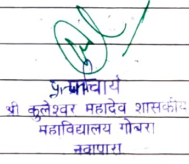 प्राचार्य
श्री कुलेश्वर महादेव शासकीय
महाविद्यालय गोबरा
नवापारा